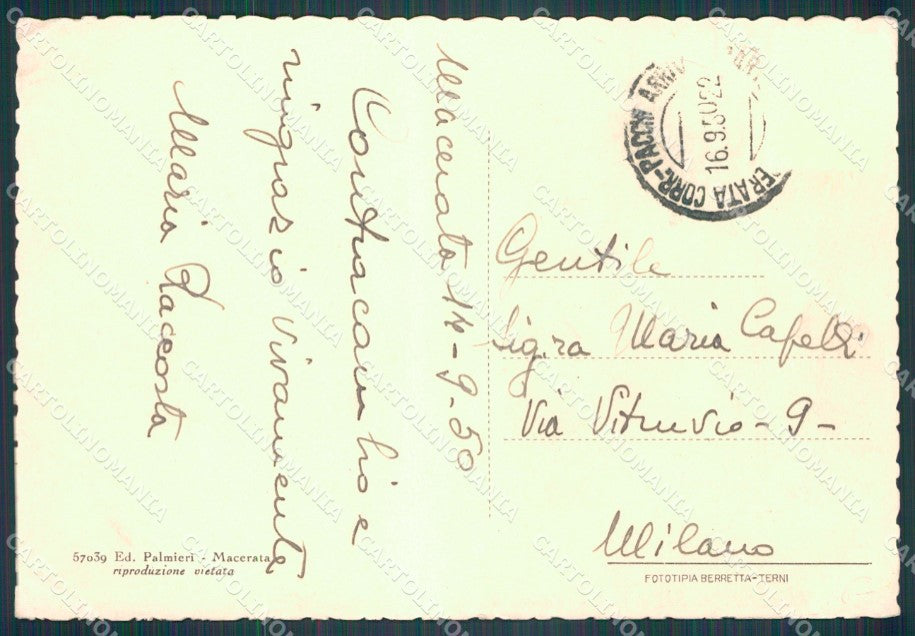 Macerata 14-9-50
Contracambio e
ringrazio vivamente
Maria Lacosta
Gentile
Sig.ra Maria Capelli
Via Vitruvio - 9 -
Milano
ERATA CORR.-PACCHI ARRIV
16.9.50 22
57039 Ed. Palmieri - Macerata
riproduzione vietata
FOTOTIPIA BERRETTA - TERNI
CARTOLINOMANIA